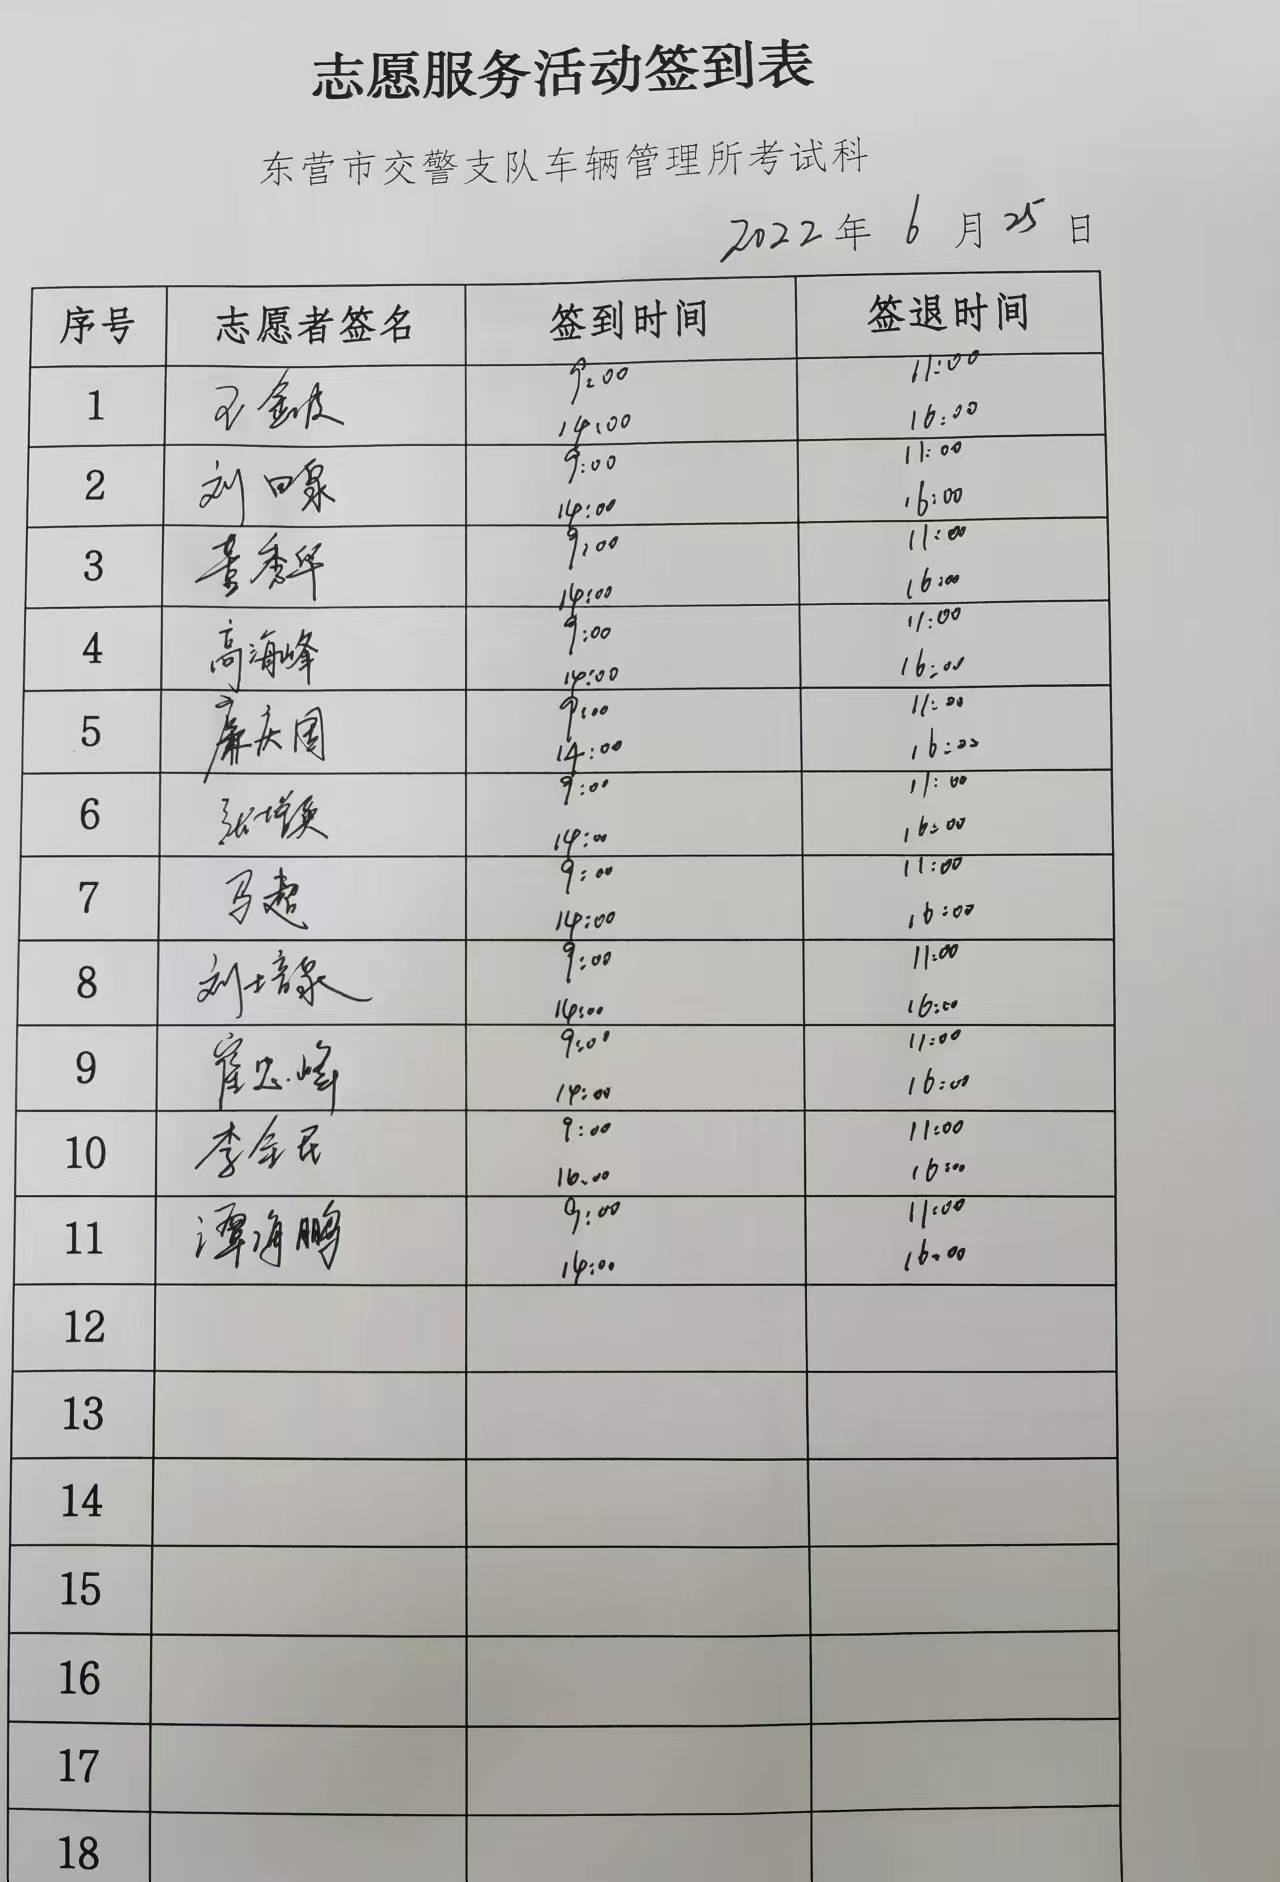 志愿服务活动签到表
东营市交警支队车辆管理所考试科
2022年 6 月 25 日
序号 志愿者签名 签到时间 签退时间
1 王金波 9:00 11:00
14:00 16:00
2 刘 9:00 11:00
14:00 16:00
3 秀华 9:00 11:00
14:00 16:00
4 高海峰 9:00 11:00
14:00 16:00
5 庆国 9:00 11:00
14:00 16:00
6 张增 9:00 11:00
14:00 16:00
7 马超 9:00 11:00
14:00 16:00
8 刘培泉 9:00 11:00
14:00 16:00
9 崔忠峰 9:00 11:00
14:00 16:00
10 李金民 9:00 11:00
16:00 16:00
11 谭海鹏 9:00 11:00
14:00 16:00
12
13
14
15
16
17
18